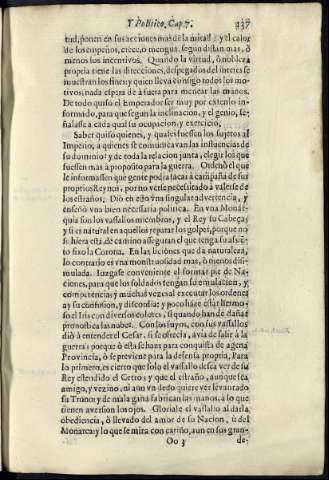 Y Politico. Cap. 7. 337
tud, ponen en sus acciones mas de la mitad: y el calor
de los empeños, crece, o mengua, segun distan mas, ò
menos los incentivos. Quando la virtud, ò nobleza
propria tiene las direcciones, despegados del interes se
muestran los fines, y quien lleva consigo todos los mo-
tivos, nada espera de afuera para menear las manos.
De todo quiso el Emperador ser muy por extenso in-
formado, para que segun la inclinacion, y el genio, se-
ñalasse a cada qual su ocupacion, y exercicio.
Saber quiso quienes, y quales fuessen los sujetos al
Imperio, a quienes se comunicavan las influencias de
su dominio? y de toda la relacion junta, elegir los que
fuessen mas à proposito para la guerra. Ordenò el que
le informassen que gente podia sacar à campaña de sus
proprios Reynos, por no verse necessitado à valerse de
los estraños. Diò en esto vna singular advertencia, y
enseñò vna bien necessaria politica. En vna Monar-
quia son los vassallos miembros, y el Rey su Cabeça,
y si es natural en aquellos reparar los golpes, porque no
se hiera esta, de camino asseguran el que tenga su asien-
to fixo la Corona. En las liciones que dà naturaleza,
lo contrario es vna monstruosidad mas, ò menos dissi-
mulada. Juzgase conveniente el formar pie de Na-
ciones, para que los soldados tengan su emulacion, y
competencia; y muchas vezes al executar los ordenes
ay su confusion, y discordia; y poco hàze estàr hermo-
so el Iris con diversos colores, si quando han de dañar
pronostica las nubes. Con los suyos, con sus vassallos
diò à entender el Cesar, si se ofrecia, avia de salir à la
guerra: porque ò esta se haze para conquista de agena
Provincia, ò se previene para la defensa propria. Para
lo primero, es cierto que solo el vassallo desea ver de su
Rey estendido el Cetro; y que el estraño, aunque sea
amigo, y vezino, ni aun verdedo quiere ver levantado
su Trono; y de mala gana fabrican las manos, à lo que
tienen aversion los ojos. Gloriase el vassallo al darla,
obediencia, ò llevado del amor de su Nacion, ù del
Monarca; y lo que se mira con cariño, aun en sus gran-
Oo 3 de-